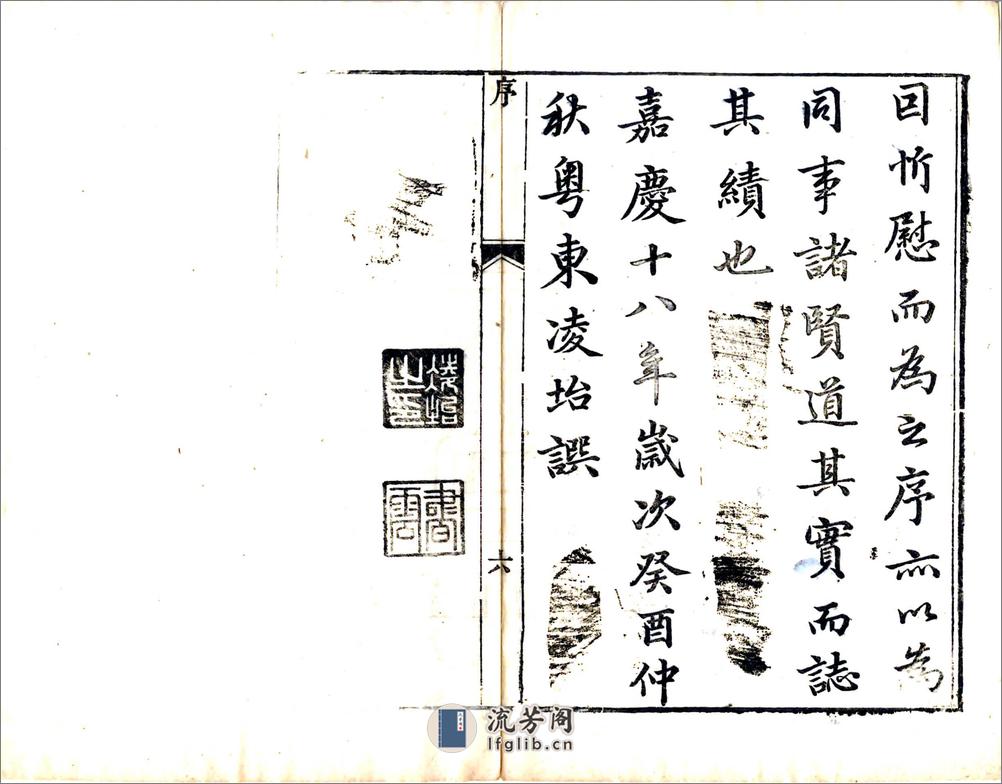 因忻慰而為之序亦以為
同事諸賢道其實而誌
其績也
嘉慶十八年歲次癸酉仲
秋粵東凌坮譔
序
六
流芳阁
lfglib.cn